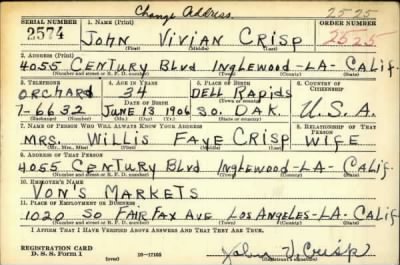 Change Address. 2525
SERIAL NUMBER 1. NAME (Print) ORDER NUMBER
2574 John Vivian Crisp 2525
(First) (Middle) (Last)
2. ADDRESS (Print)
4055 Century Blvd Inglewood-LA-Calif.
(Number and street or R. F. D. number) (Town) (County) (State)
3. TELEPHONE 4. AGE IN YEARS 5. PLACE OF BIRTH 6. COUNTRY OF CITIZENSHIP
Orchard 34 Dell Rapids
(Town or county)
DATE OF BIRTH
7-6632 June 13 1906 So. Dak. U.S.A.
(Exchange) (Number) (Mo.) (Day) (Yr.) (State or country)
7. NAME OF PERSON WHO WILL ALWAYS KNOW YOUR ADDRESS 8. RELATIONSHIP OF THAT PERSON
Mrs. Willis Faye Crisp Wife
(Mr., Mrs., Miss) (First) (Middle) (Last)
9. ADDRESS OF THAT PERSON
4055 Century Blvd Inglewood-LA-Calif.
(Number and street or R. F. D. number) (Town) (County) (State)
10. EMPLOYER'S NAME
Von's Markets
11. PLACE OF EMPLOYMENT OR BUSINESS
1020 So Fairfax Ave Los Angeles-LA-Calif
(Number and street or R. F. D. number) (Town) (County) (State)
I AFFIRM THAT I HAVE VERIFIED ABOVE ANSWERS AND THAT THEY ARE TRUE.
REGISTRATION CARD
D. S. S. Form 1 16-17105 John V Crisp